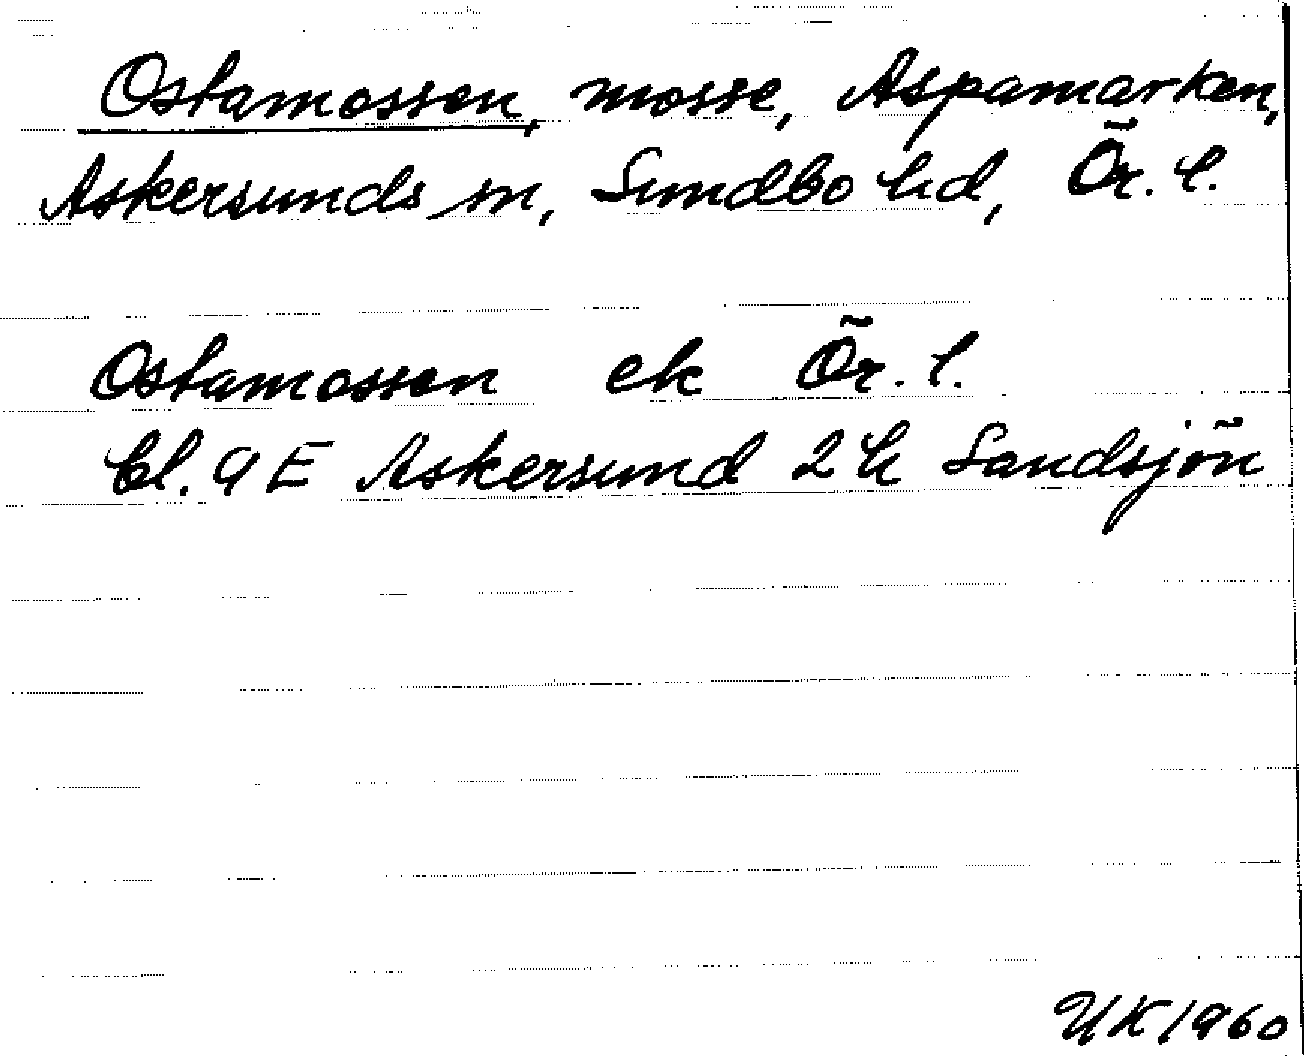 Ostamossen, mosse, Aspamarken,
Askersunds sn, Sundbo hd, Ör. l.
Ostamossen ek Ör. l.
bl. 9 E Askersund 2 h Sandsjön
UK 1960